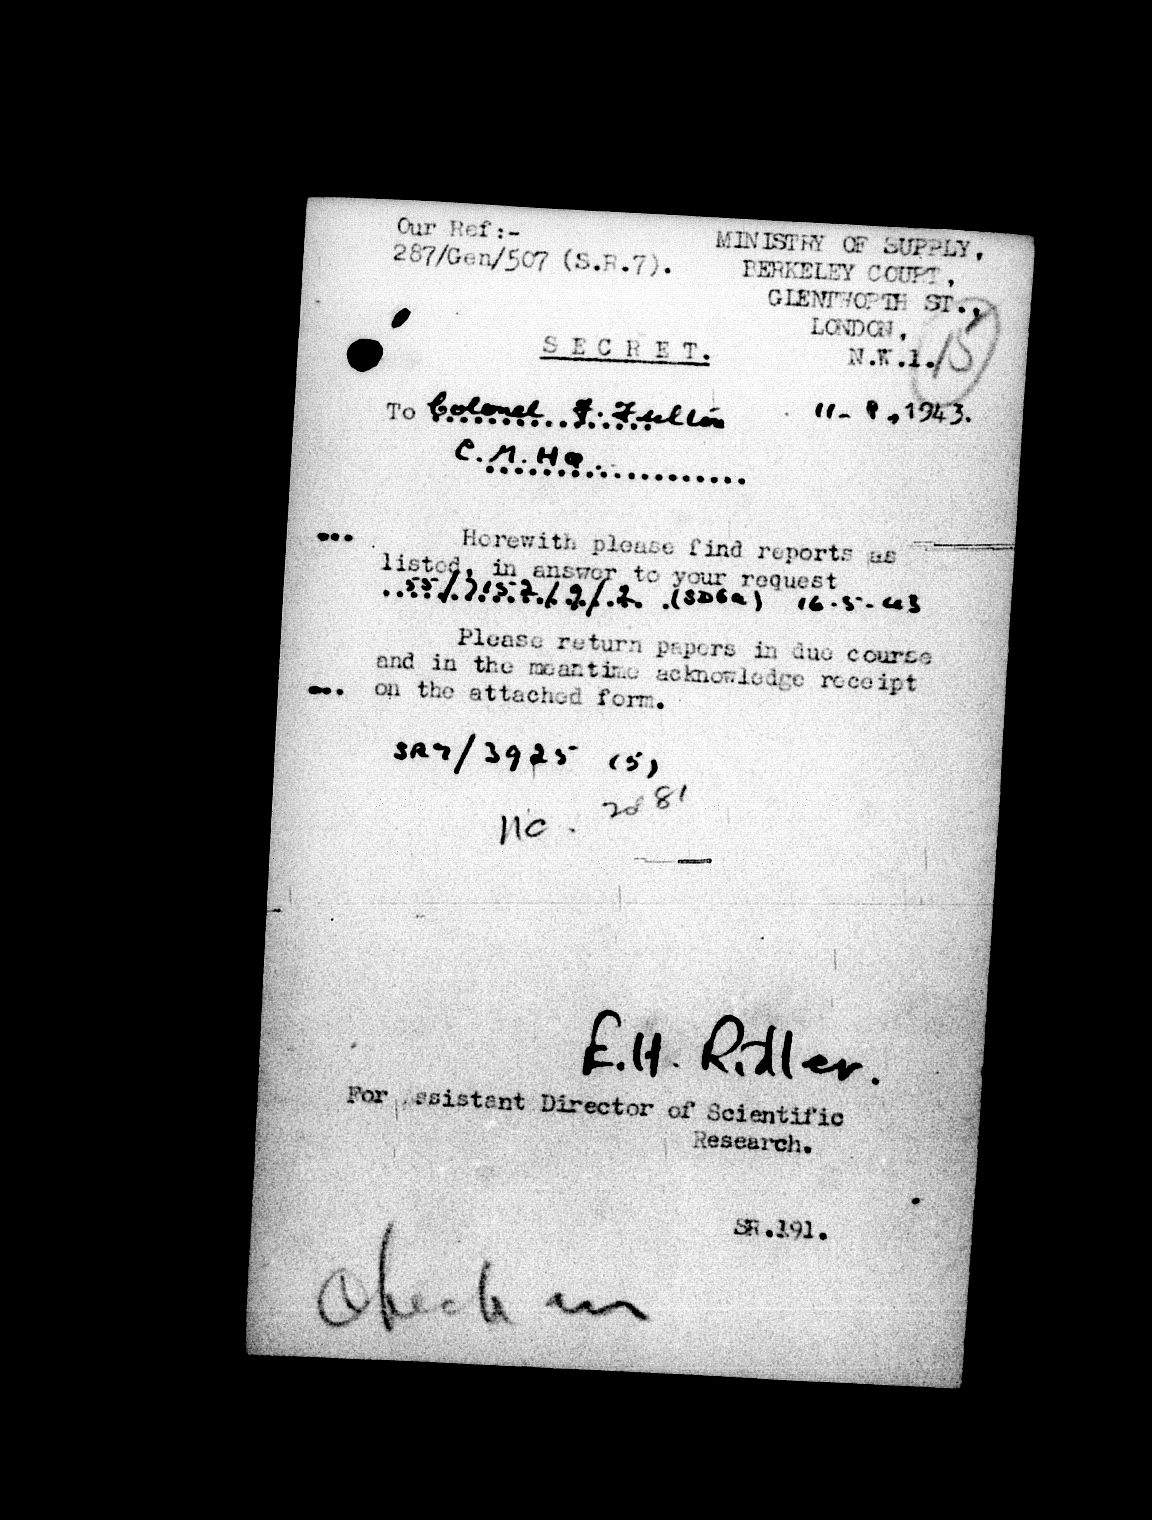 Our Ref:-
287/Gen/507 (S.R.7).
MINISTRY OF SUPPLY,
BERKELEY COURT,
GLENTWORTH ST.,
LONDON,
N.W.1.
15
SECRET.
To Colonel J. Fullin
11-8,1943.
C.M.HQ
Herewith please find reports as
listed, in answer to your request
55/7157/9/2 (SD6a) 16-5-43
Please return papers in due course
and in the meantime acknowledge receipt
on the attached form.
SR7/3925 (5)
81
E.H. Ridler.
For Assistant Director of Scientific
Research.
SR.191.
Check